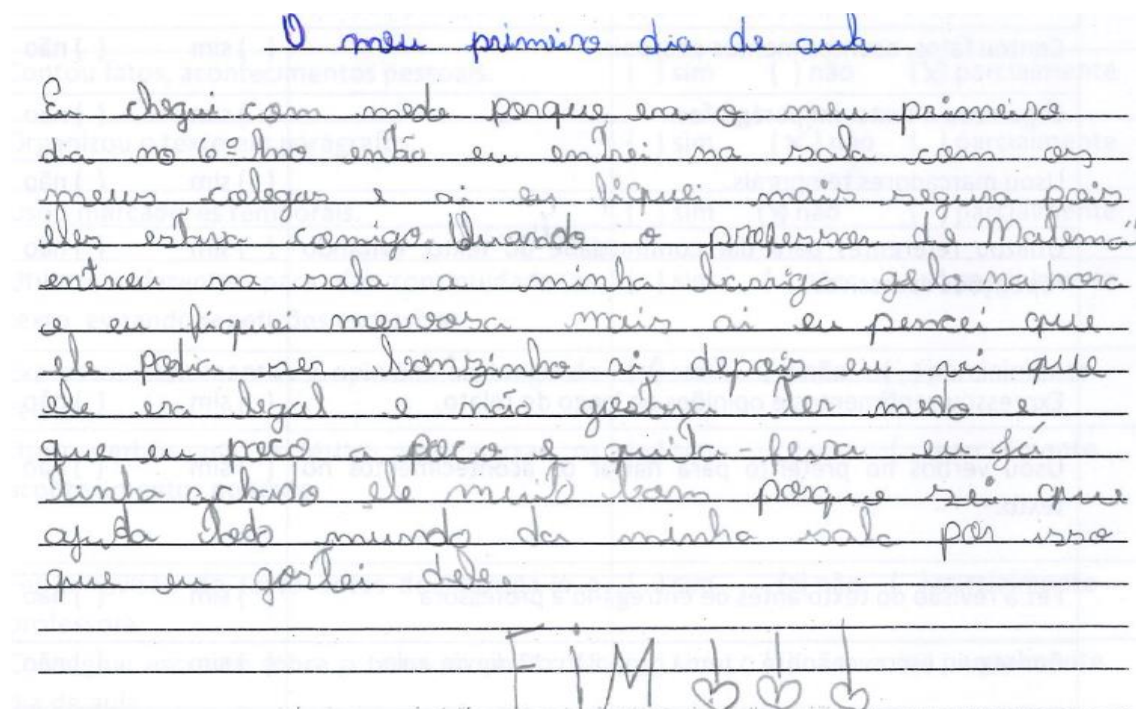 O meu primeiro dia de aula
Eu chegui com medo porque era o meu primeiro
dia no 6º Ano então eu entrei na sala com os
meus colegas e ai eu fiquei mais segura pois
eles estava comigo. Quando o professor de Matemá
entrou na sala a minha barriga gelo na hora
e eu fiquei nervosa mais ai eu pencei que
ele podia ser bonzinho ai depois eu vi que
ele era legal e não gostava ter medo e
que eu poco a poco e quita-feira eu já
tinha achado ele muito bom porque sei que
ajuda todo mundo da minha sala por isso
que eu gostei dele.
FIM